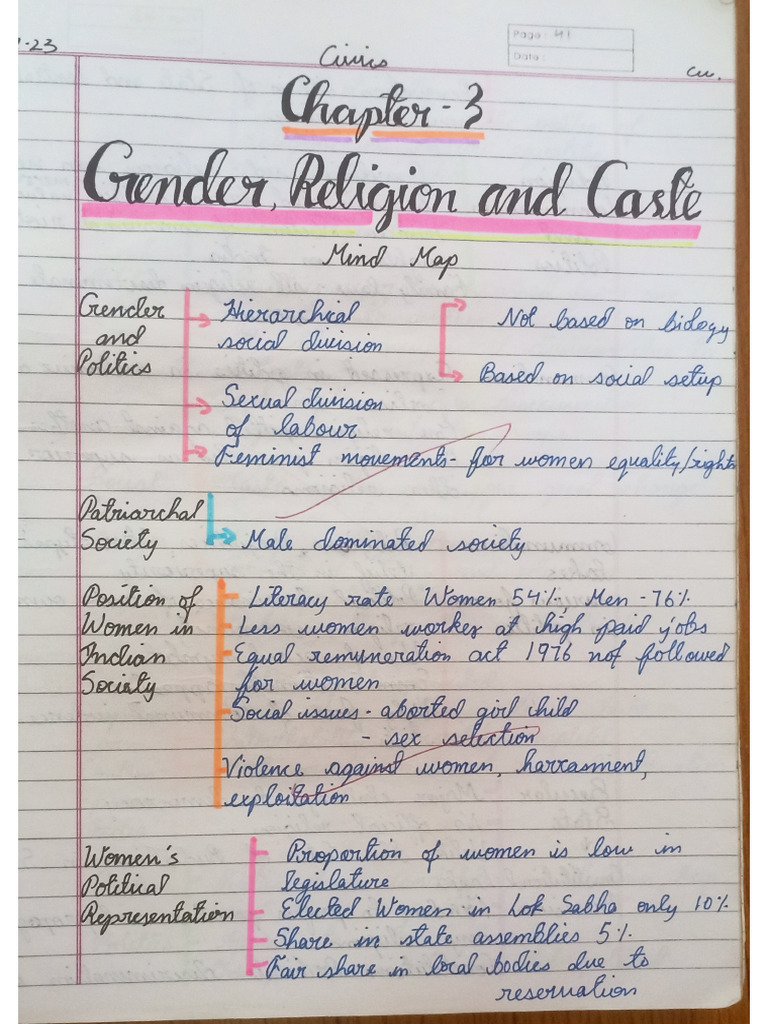 -23
Civics
Page: 41
Date:
cw.
Chapter-3
Gender, Religion and Caste
Mind Map
Gender and Politics
Hierarchical social division
Not based on biology
Based on social setup
Sexual division of labour
Feminist movements - for women equality/rights
Patriarchal Society
Male dominated society
Position of Women in Indian Society
Literacy rate Women 54%, Men - 76%
Less women worker at high paid jobs
Equal remuneration act 1976 not followed
for women
Social issues - aborted girl child
- sex selection
Violence against women, harrasment,
exploitation
Women's Political Representation
Proportion of women is low in
legislature
Elected Women in Lok Sabha only 10%
Share in state assemblies 5%
Fair share in local bodies due to
reservation